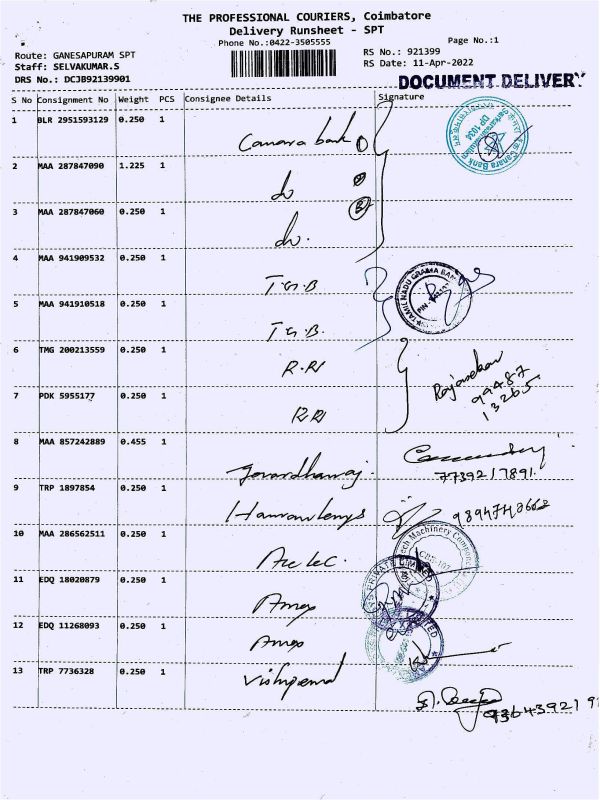 THE PROFESSIONAL COURIERS, Coimbatore
Delivery Runsheet - SPT
Phone No.:0422-3505555
Page No.:1
Route: GANESAPURAM SPT
RS No.: 921399
Staff: SELVAKUMAR.S
RS Date: 11-Apr-2022
DRS No.: DCJB92139901
DOCUMENT DELIVERY
S No Consignment No Weight PCS Consignee Details Signature
1 BLR 2951593129 0.250 1 Canara bank 1
2 MAA 287847090 1.225 1 do 2
3 MAA 287847060 0.250 1 do. 3
4 MAA 941909532 0.250 1 T.G.B
5 MAA 941910518 0.250 1 T.G.B.
TAMIL NADU GRAMA BANK
6 TMG 200213559 0.250 1 R.R
7 PDK 5955177 0.250 1 RR
Rajasekar
99487
13265
8 MAA 857242889 0.455 1 Govardhanaj.
7739217891.
9 TRP 1897854 0.250 1
9894743662
10 MAA 286562511 0.250 1
11 EDQ 18020879 0.250 1
PRIVATE LIMITED
12 EDQ 11268093 0.250 1
13 TRP 7736328 0.250 1